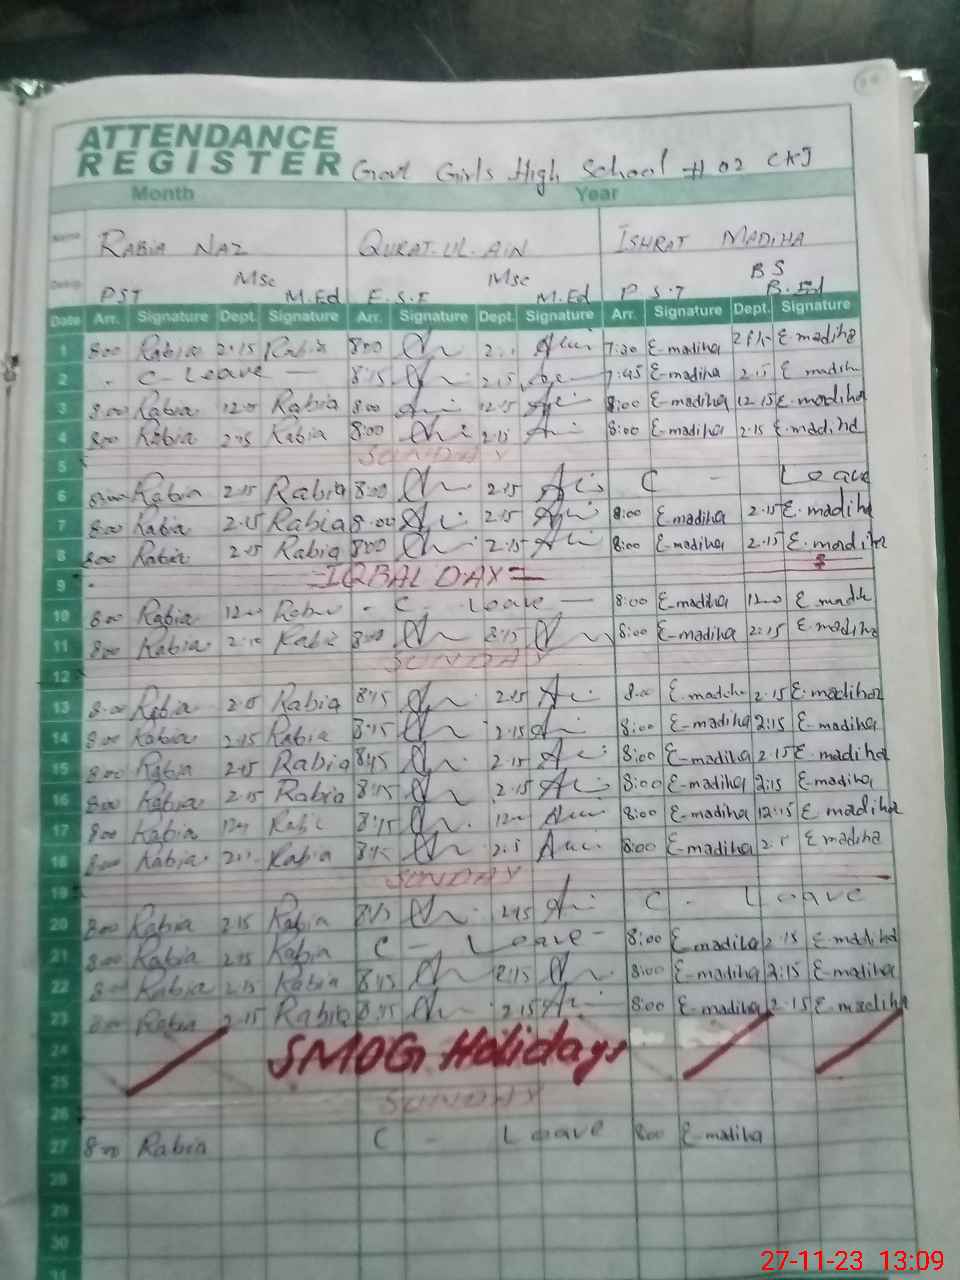 ATTENDANCE
REGISTER Govt Girls High School # 02 CKJ
Month Year
Name RABIA NAZ QURAT-UL-AIN ISHRAT MADIHA
Desig. PST Msc M.Ed E.S.E Msc M.Ed P.S.T BS B.Ed
Date Arr. Signature Dept. Signature Arr. Signature Dept. Signature Arr. Signature Dept. Signature
1 8:00 Rabia 2:15 Rabia 8:00 7:30 E-madiha E-madiha
2 C-Leave 8:15 2:15 7:45 E-madiha 2:15 E madiha
3 8:00 Rabia Rabia 8:00 12:15 8:00 E-madiha 12:15 E-madiha
4 8:00 Rabia 2:15 Rabia 8:00 2:15 8:00 E-madiha 2:15 E-madiha
5 SUNDAY
6 8:00 Rabia 2:15 Rabia 8:00 2:15 C - Leave
7 8:00 Rabia 2:15 Rabia 8:00 2:15 8:00 E-madiha 2:15 E-madiha
8 8:00 Rabia 2:15 Rabia 8:00 2:15 8:00 E-madiha 2:15 E-madiha
9 =IQBAL DAY=
10 8:00 Rabia 12:00 - C - Leave - 8:00 E-madiha 12:00 E madiha
11 8:00 Rabia Rabia 8:00 8:00 E-madiha 2:15 E-madiha
12 SUNDAY
13 8:00 Rabia Rabia 8:15 2:15 8:00 E-madiha 2:15 E-madiha
14 8:00 Rabia 2:15 Rabia 8:15 2:15 8:00 E-madiha 2:15 E-madiha
15 8:00 Rabia 2:15 Rabia 8:45 2:15 8:00 E-madiha 2:15 E-madiha
16 8:00 Rabia 2:15 Rabia 8:15 2:15 8:00 E-madiha 2:15 E-madiha
17 8:00 Rabia Rabia 8:15 12:00 8:00 E-madiha 12:15 E madiha
18 8:00 Rabia Rabia 8:15 8:00 E-madiha E madiha
19 SUNDAY
20 8:00 Rabia 2:15 Rabia C - Leave
21 8:00 Rabia 2:15 Rabia C - Leave - 8:00 E-madiha 2:15 E-madiha
22 8:00 Rabia 2:15 Rabia 8:15 2:15 8:00 E-madiha 2:15 E-madiha
23 8:00 Rabia 2:15 Rabia 8:15 2:15 8:00 E-madiha 2:15 E-madiha
24 SMOG Holidays
25
26 SUNDAY
27 8:00 Rabia C - Leave 8:00 E-madiha
28
29
30
31
27-11-23 13:09